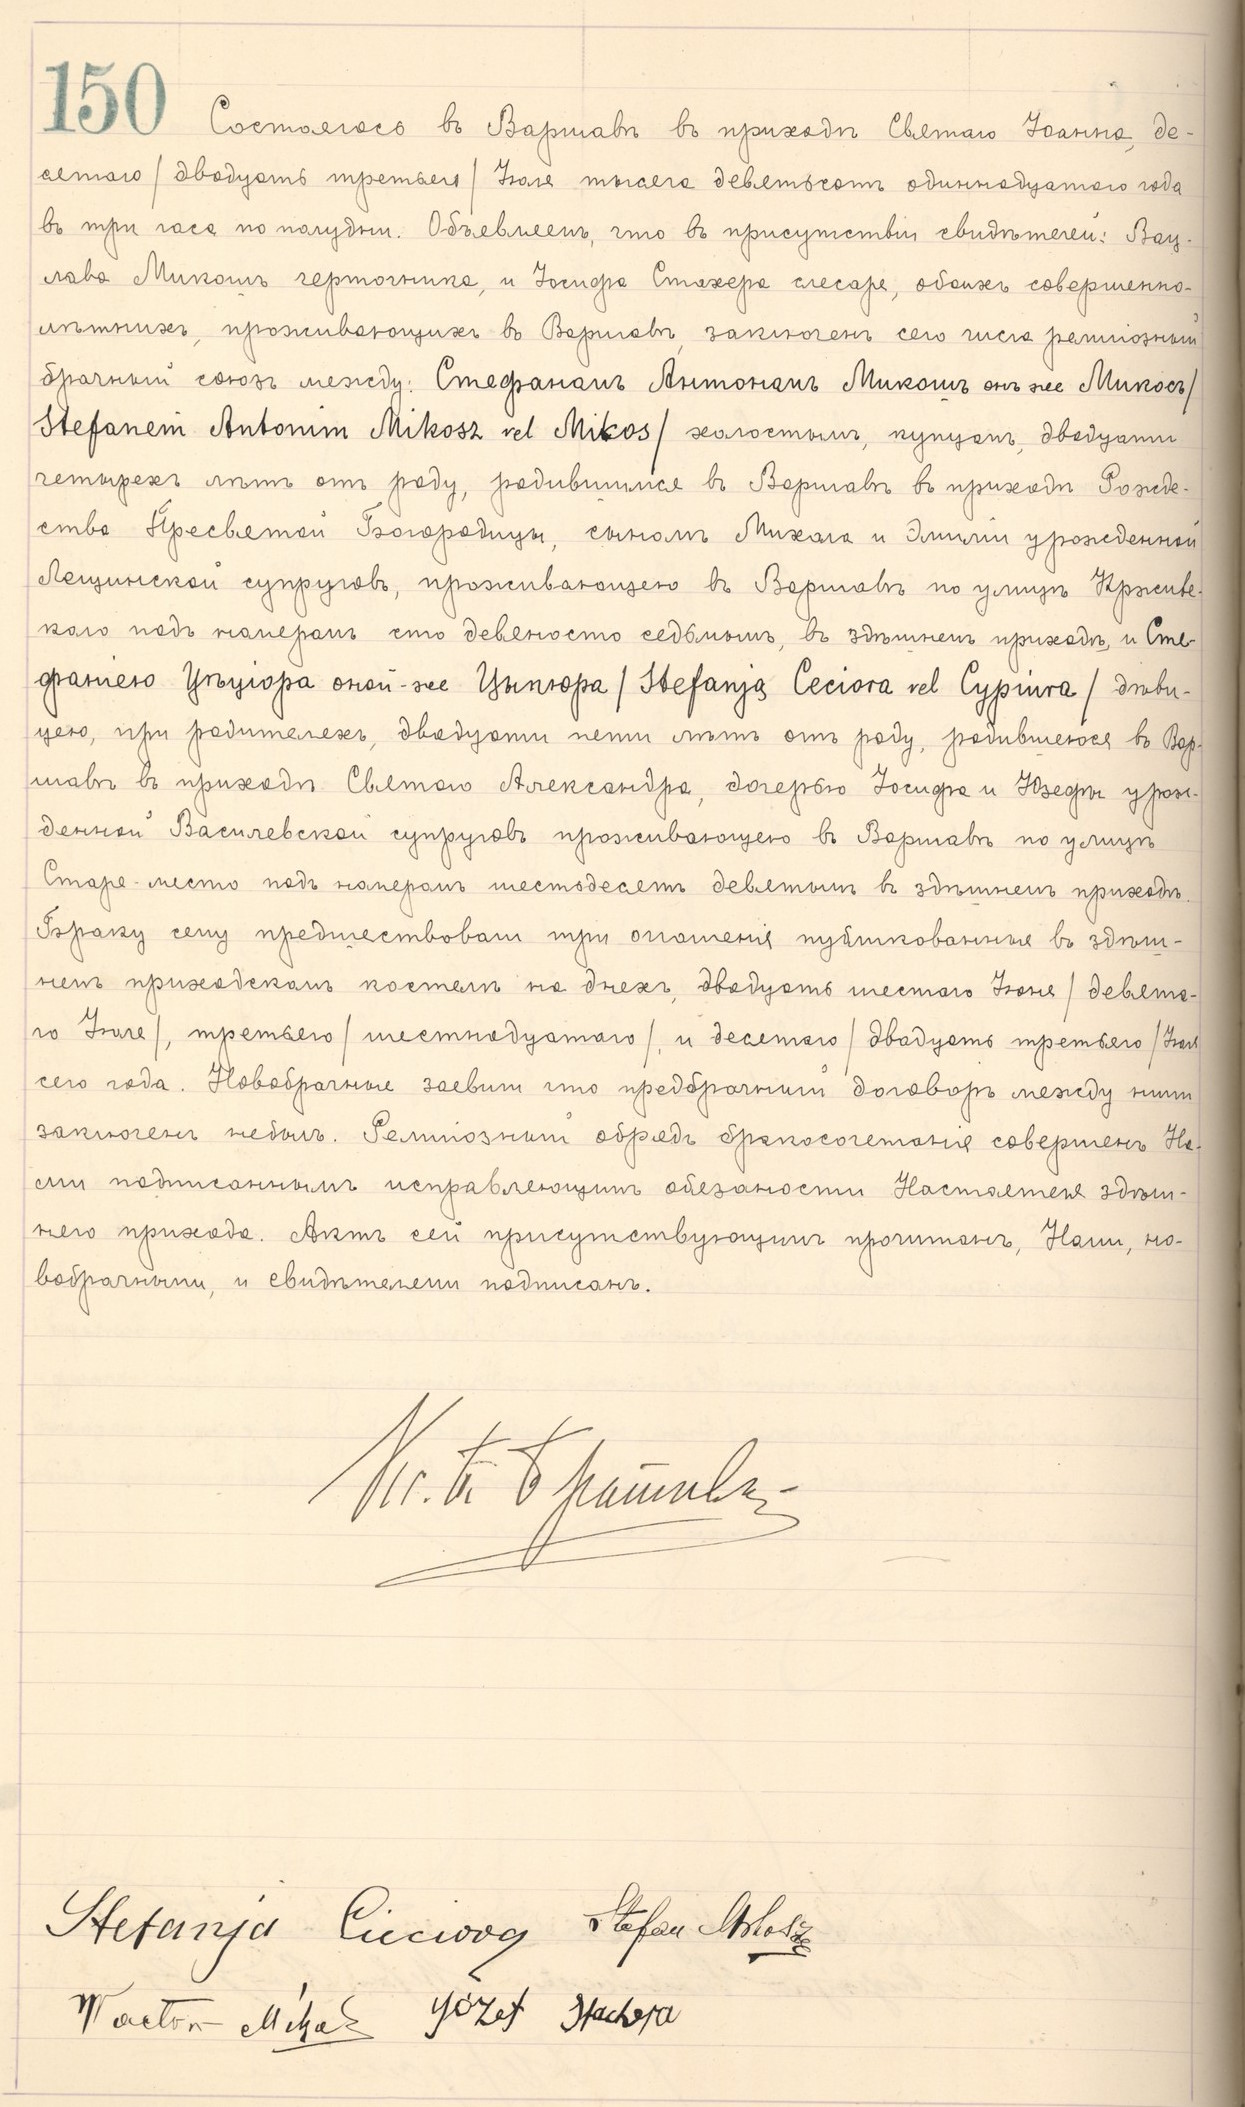 150 Состоялось въ Варшавѣ въ приходѣ Святаго Іоанна, де-
сятаго / двадцать третьяго / Іюля тысяча девятьсотъ одиннадцатаго года
въ три часа по полудни. Объявляемъ, что въ присутствіи свидѣтелей: Вац-
лава Микошъ чертежника, и Іосифа Стахера слесаря, обоихъ совершенно-
лѣтнихъ, проживающихъ въ Варшавѣ, заключенъ сего числа религіозный
брачный союзъ между: Стефаномъ Антономъ Микошъ онъ же Микосъ /
Stefanem Antonim Mikosz vel Mikos / холостымъ, купцомъ, двадцати
четырехъ лѣтъ отъ роду, родившимся въ Варшавѣ въ приходѣ Рожде-
ства Пресвятой Богородицы, сыномъ Михала и Эмиліи урожденной
Лещинской супруговъ, проживающего въ Варшавѣ по улицѣ Крживе-
коло подъ номеромъ сто девяносто седьмымъ, въ здѣшнемъ приходѣ, и Сте-
фаніею Цѣціора оной-же Цыпюра / Stefanją Ceciora vel Cypiura / дѣви-
цею, при родителяхъ, двадцати пяти лѣтъ отъ роду, родившеюся въ Вар-
шавѣ въ приходѣ Святаго Александра, дочерью Іосифа и Юзефы урож-
денной Василевской супруговъ проживающею въ Варшавѣ по улицѣ
Старе-място подъ номеромъ шестьдесятъ девятымъ въ здѣшнемъ приходѣ.
Браку сему предшествовали три оглашенія публикованныя въ здѣш-
немъ приходскомъ костелѣ на дняхъ, двадцать шестаго Іюня / девята-
го Іюля /, третьяго / шестнадцатаго /, и десятаго / двадцать третьяго / Іюля
сего года. Новобрачные заявили что предбрачный договоръ между ними
заключенъ небылъ. Религіозный обрядъ бракосочетанія совершенъ На-
ми подписаннымъ исправляющимъ обязаности Настоятеля здѣш-
него прихода. Актъ сей присутствующимъ прочитанъ, Нами, но-
вобрачными, и свидѣтелями подписанъ.
Stefanja Stefan Mikosz
Józef Stachera